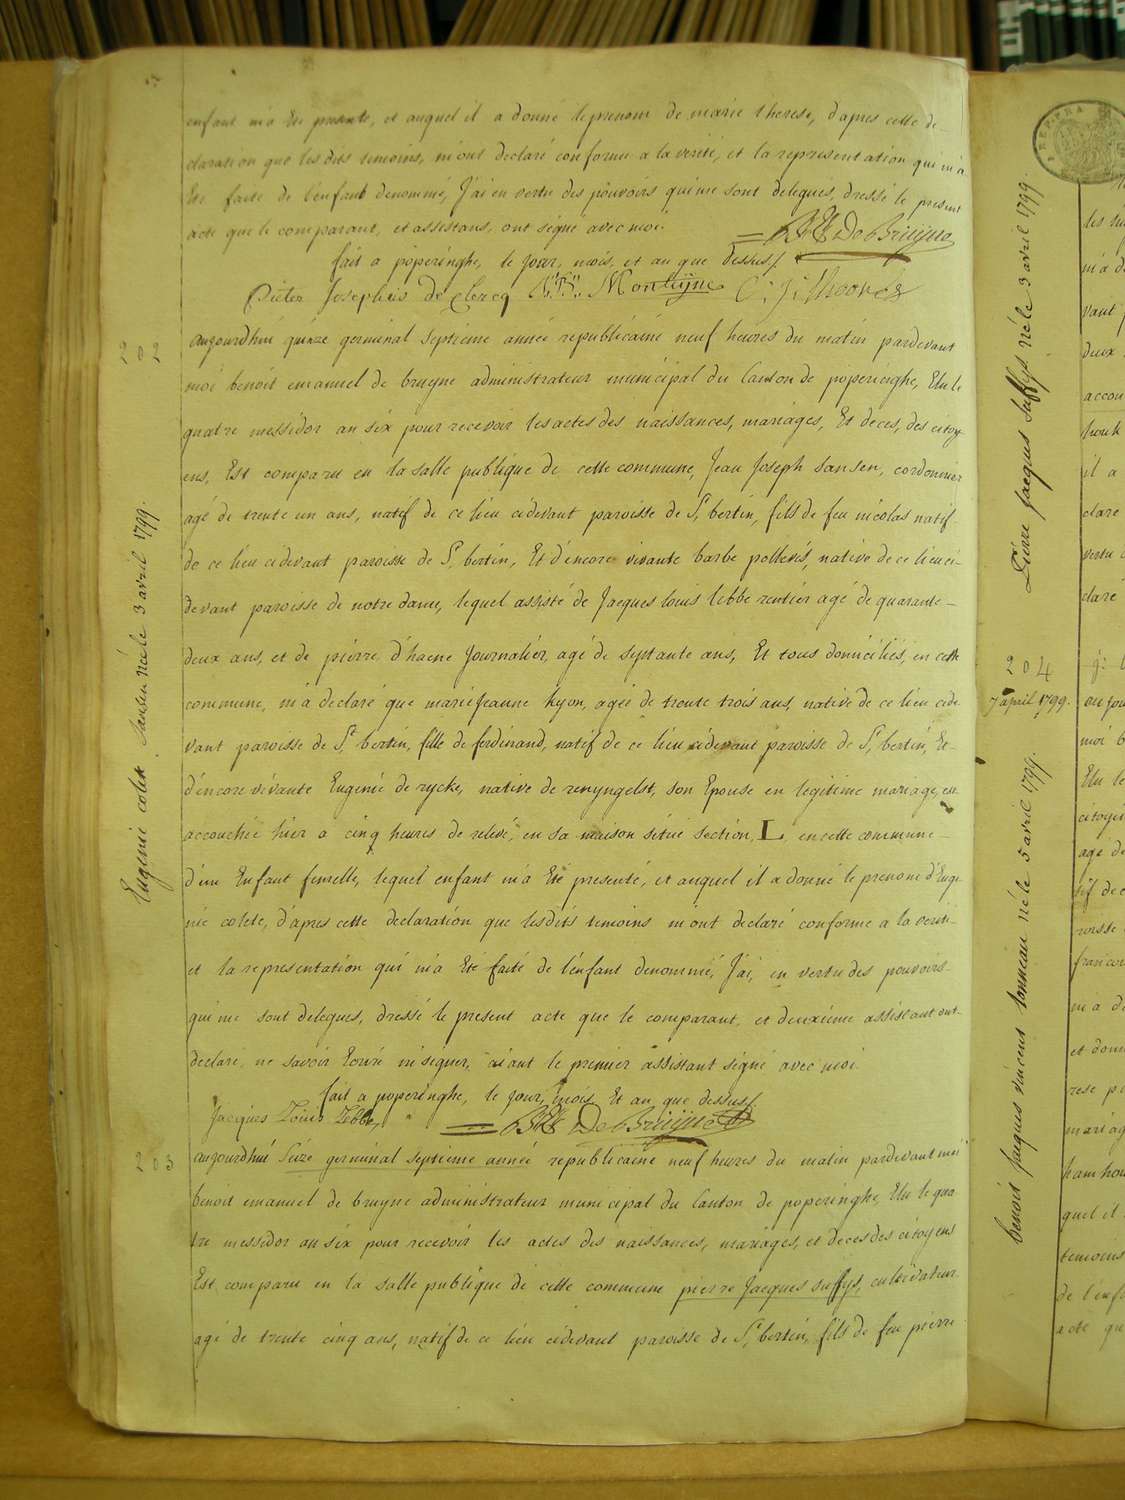 enfant m'a été presenté, et auquel il a donné le prenom de marie therese, d'apres cette de-
claration que lesdits temoins, m'ont declaré conforme a la verité, et la representation qui m'a
Eté faite de l'enfant denommé, J'ai en vertu des pouvoirs qui me sont delegués, dressé le present
acte que le comparant, et assistans, ont signé avec moi.
= BE De Bruijne
fait a poperinghe, le jour, mois, et an que dessus/.
Pieter Josephus de Clercq Montijne
202
aujourdhui quinze germinal septieme année republicaine neuf heures du matin pardevant
moi benoit emanuel de bruyne administrateur municipal du Canton de poperinghe, Elu le
quatre messidor an six pour recevoir les actes des naissances, mariages, Et deces, des citoy
ens, Est comparu en la salle publique de cette commune, Jean Joseph Sansen, cordonnier
agé de trente un ans, natif de ce lieu cidevant paroisse de St bertin, fils de feu nicolas natif-
de ce lieu cidevant paroisse de St bertin, Et d'encore vivante barbe pollevis, native de ce lieu ci-
devant paroisse de notre dame, lequel assisté de Jacques louis lebbe rentier agé de quarante-
deux ans, et de pierre d'haene Journalier, agé de septante ans, Et tous domiciliés, en cette
commune, m'a declaré que marie jeanne kyon, agée de trente trois ans, native de ce lieu cide
vant paroisse de St bertin, fille de ferdinand, natif de ce lieu cidevant paroisse de St bertin, Et-
d'encore vivante Eugenie de rycke, native de renyngelst, son Epouse en legitime mariage, est
accouchée hier a cinq heures de relevé, en sa maison située section, L, en cette commune-
d'un Enfant femelle, lequel enfant m'a Eté presenté, et auquel il a donné le prenom d'Euge
nie colete, d'apres cette declaration que lesdits temoins m'ont declaré conforme a la verité-
et la representation qui m'a Eté faite de l'enfant denommé, J'ai, en vertu des pouvoirs
qui me sont delegués, dressé le present acte que le comparant, et deuxieme assistant ont-
declaré, ne savoir Ecrire ni signer, aiant le premier assistant signé avec moi.
fait a poperinghe, le jour, mois Et an, que dessus/.
Jacques Louis Lebbe, = BE De Bruijne
203
aujourdhui seize germinal septieme année republicaine neuf heures du matin pardevant moi
benoit emanuel de bruyne administrateur municipal du Canton de poperinghe, Elu le qua
tre messidor an six pour recevoir les actes des naissances, mariages, et deces des citoyens
Est comparu en la salle publique de cette commune pierre Jacques suffys, cultivateur
agé de trente cinq ans, natif de ce lieu cidevant paroisse de St bertin, fils de feu pierre
Eugenie colete Sansen née le 3 avril 1799.
Pierre jacques Suffys né le 3 avril 1799.
204
7 april 1799.
benoit jaques vincens tonneau né le 5 avril 1799.
m'a d
vant
deux
accou
il a
clare
vertu
claré
moi b
Elu le
citoyen
agé de
roisse
m'a d
mariag
quel il
temoins
de l'enf
acte qu